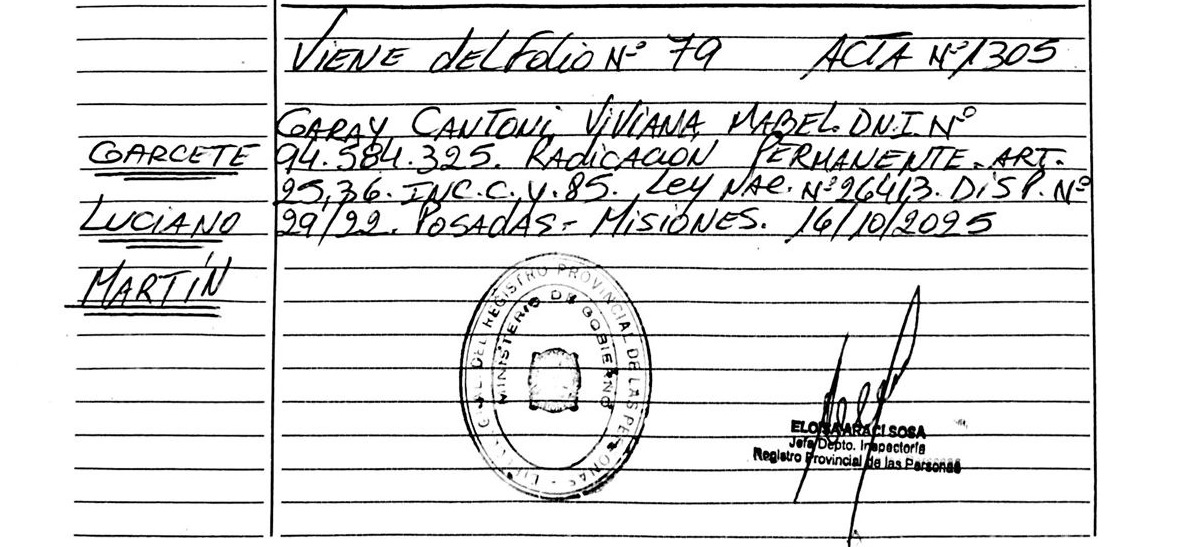 VIENE del Folio Nº 79 ACTA Nº 1305
GARAY CANTONI, VIVIANA MABEL. D.N.I. Nº
GARCETE
94.584.325. RADICACIÓN PERMANENTE. ART.
25,36. INC.C.Y.85. Ley NAC. Nº 26413. DISP. Nº
LUCIANO
29/22. POSADAS - MISIONES. 16/10/2025
MARTÍN
DEL REGISTRO PROVINCIAL DE LAS PERSONAS
MINISTERIO DE GOBIERNO
ELOISA ARACI SOSA
Jefa Depto. Inspectoría
Registro Provincial de las Personas